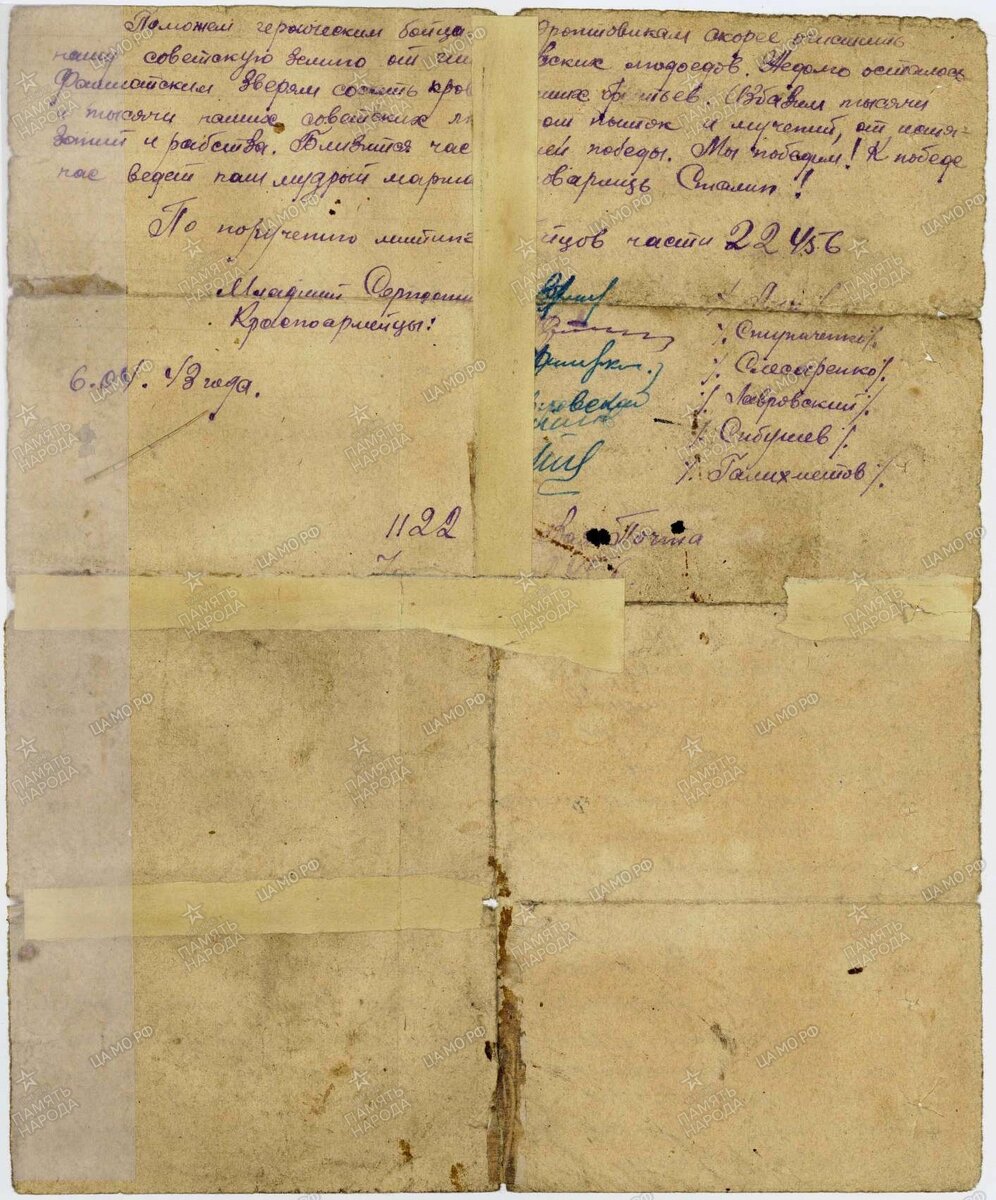 Поможем героическим бойца фронтовикам скорее очистить
нашу советскую землю от ги вских людоедов. Недолго осталось
фашистским зверям сосать кров наших братьев. Избавим тысячи
и тысячи наших советских л от пыток и мучений, от истя=
заний и рабства. Близится час ей победы. Мы победим! К победе
нас ведет наш мудрый марша оварищь Сталин!
По поручению митинг йцов части 22456
Младший Сержант
Красноармейцы:
/. Ступаченко/.
/. Слесаренко/.
/. Лавровский/.
/. Сибушев/.
/. Галихметов/.
6. 04. 43 года.
1122 Почта